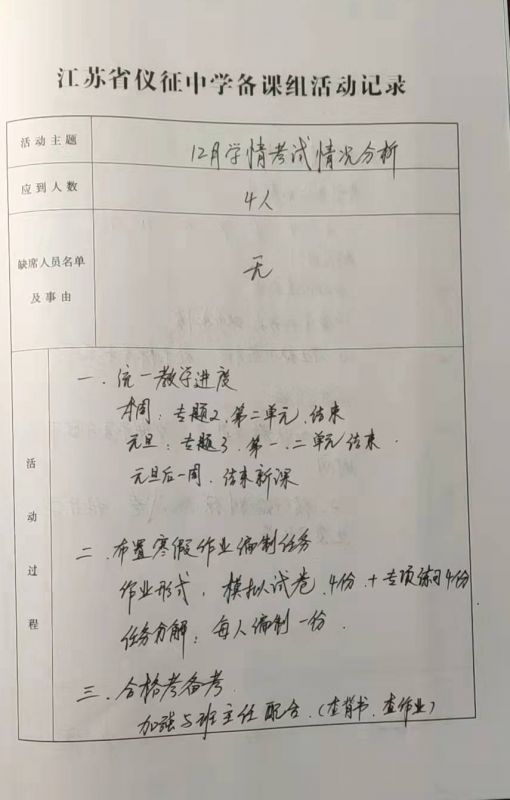 江苏省仪征中学备课组活动记录
活动主题 12月学情考试情况分析
应到人数 4人
缺席人员名单
及事由 无
活动过程
一.统一教学进度
本周:专题2.第二单元.结束
元旦:专题3.第一.二单元结束.
元旦后一周.结束新课
二.布置寒假作业编制任务
作业形式,模拟试卷.4份.+专项练习4份
任务分解:每人编制一份.
三.合格考备考.
加强与班主任配合.(查背书.查作业)